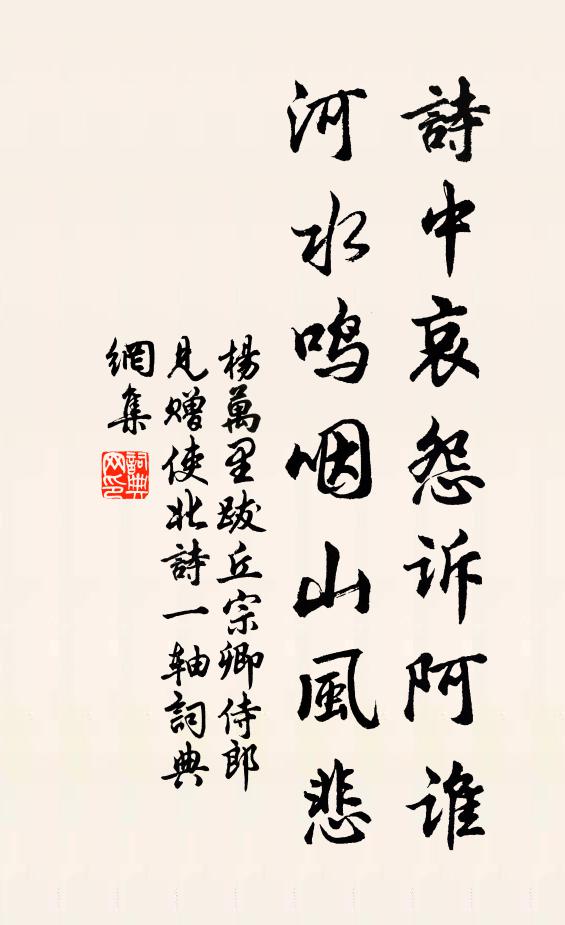 詩中哀怨訴阿谁
河水鸣咽山風悲
楊萬里跋丘宗卿侍郎
見贈使北詩一軸詞典
網集
詞典
网印